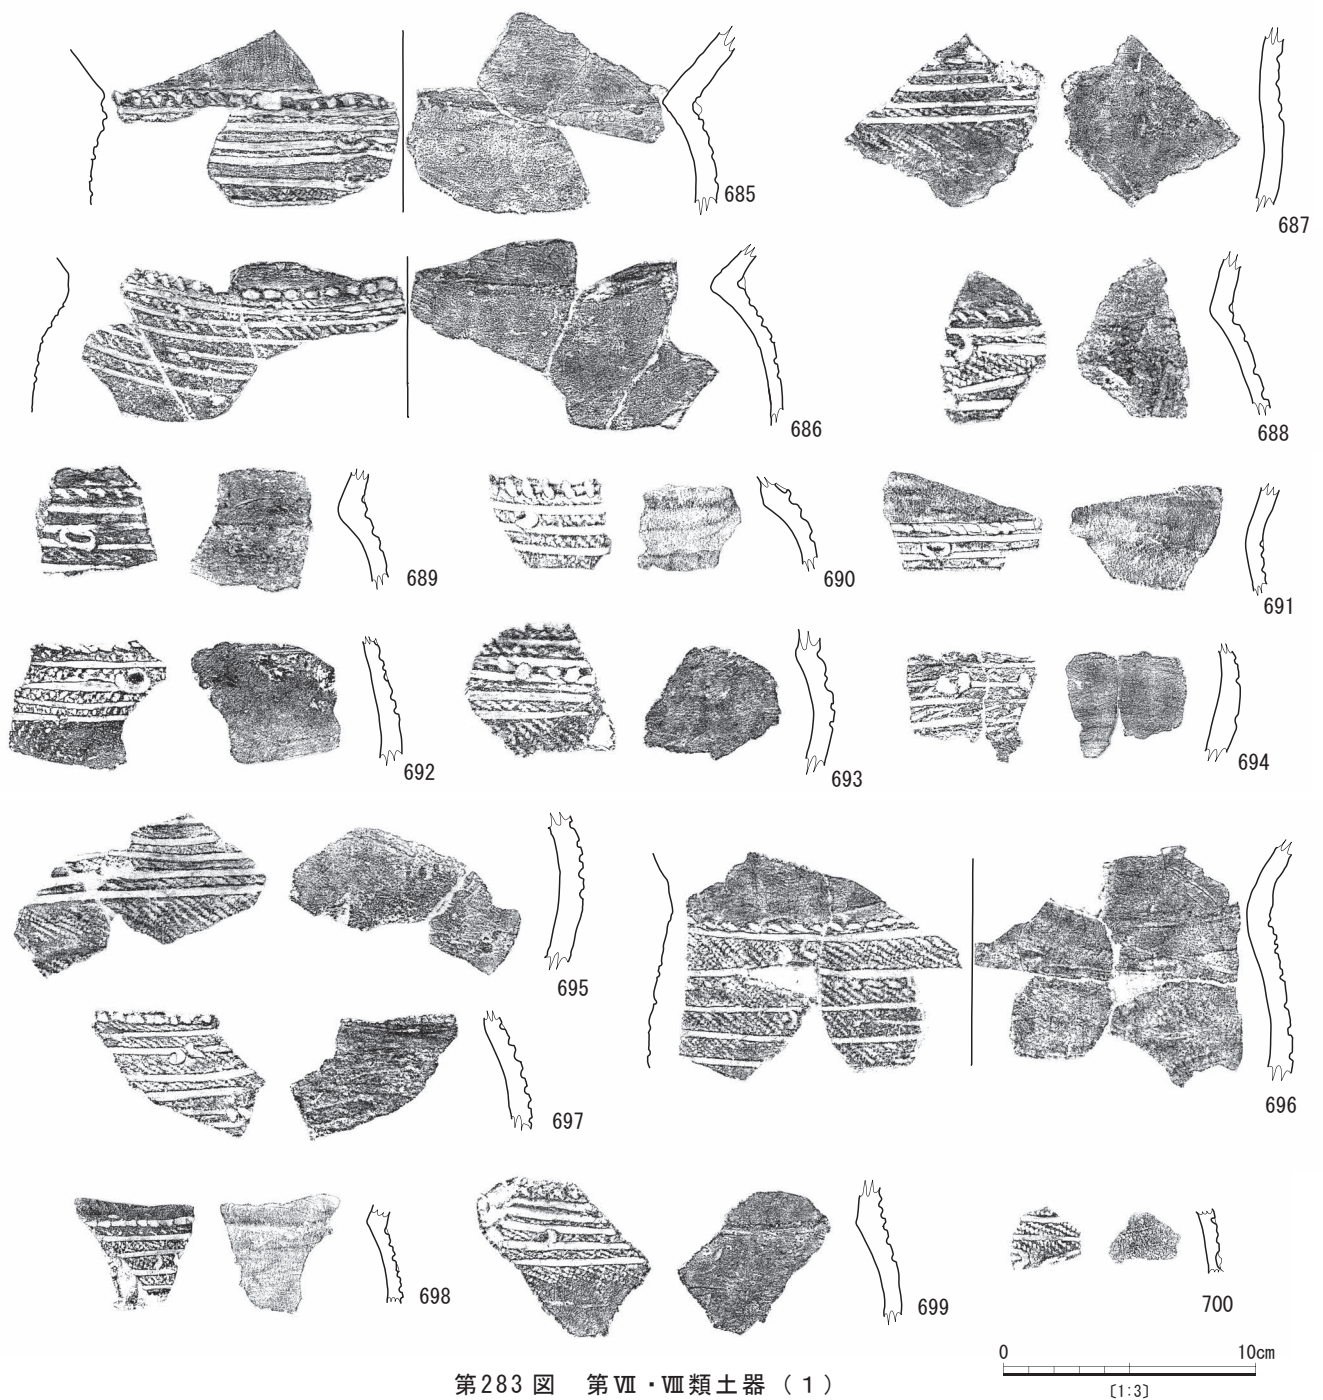 685
687
686
688
689
690
691
692
693
694
695
696
697
698
699
700
0 10cm
〔1:3〕
第283図 第Ⅶ・Ⅷ類土器（1）